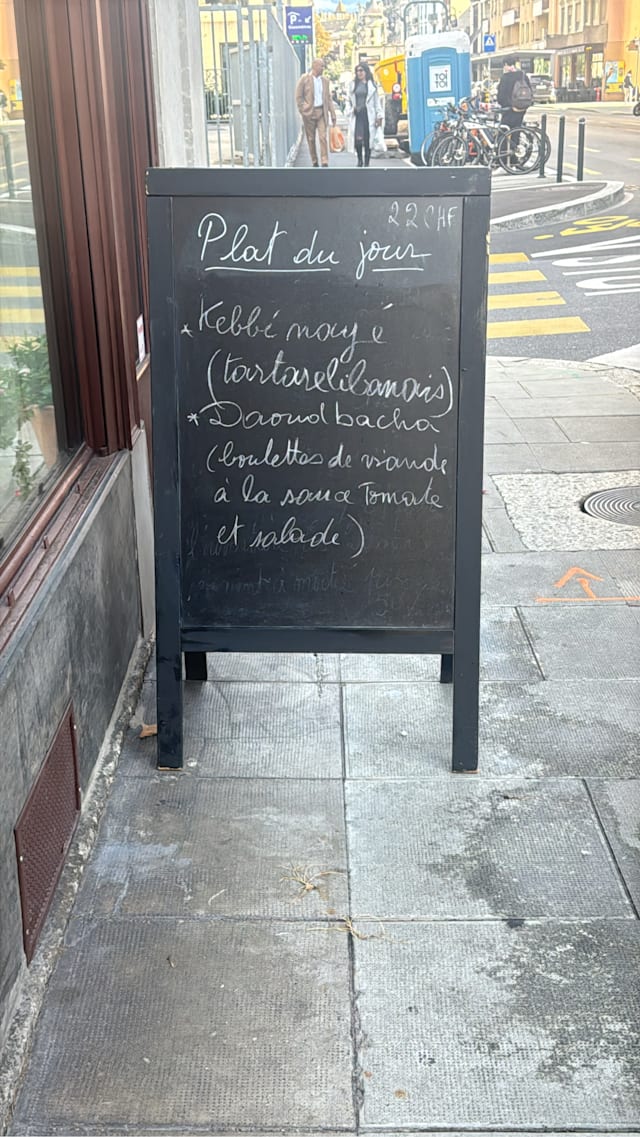 22CHF
Plat du jour
* Kebbé nayé
(tartare libanais)
* Daoud bacha
(boulettes de viande
à la sauce Tomate
et salade)
P
TOI
TOI